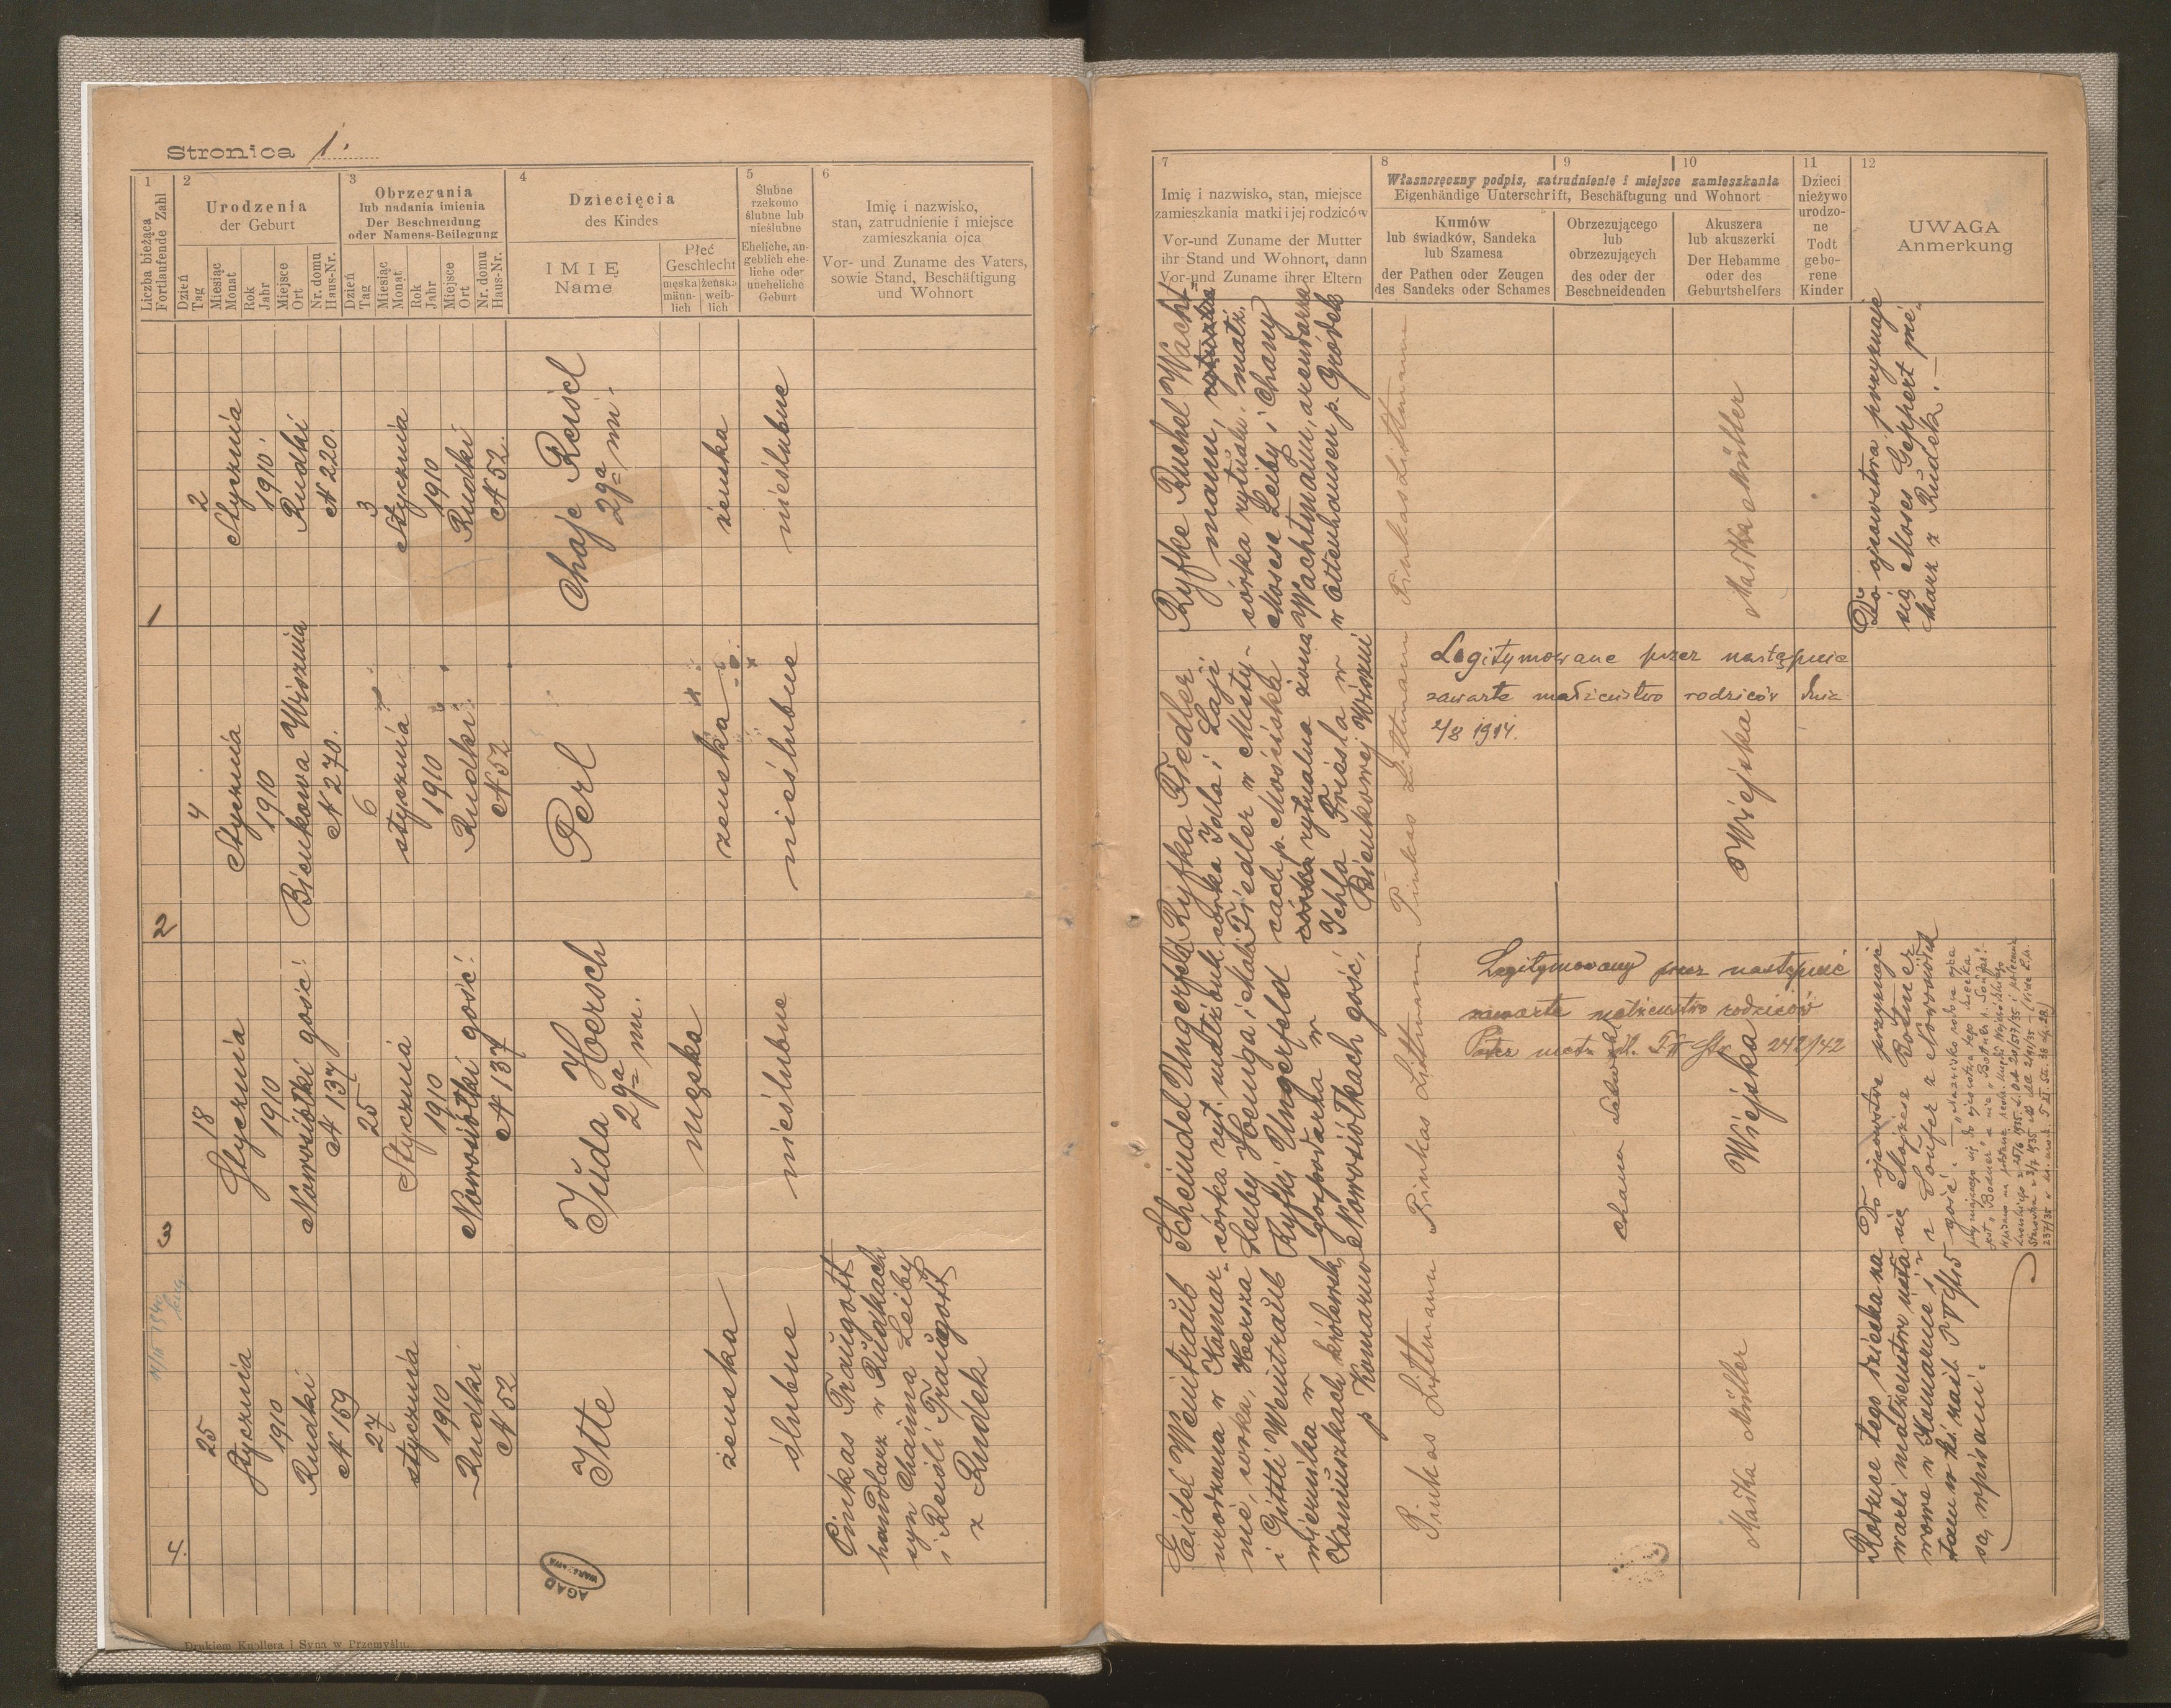 Stronica 1.
1
Liczba bieżąca
Fortlaufende Zahl
2
Urodzenia
der Geburt
Dzień
Tag
Miesiąc
Monat
Rok
Jahr
Miejsce
Ort
Nr. domu
Haus-Nr.
3
Obrzezania
lub nadania imienia
Der Beschneidung
oder Namens-Beilegung
Dzień
Tag
Miesiąc
Monat
Rok
Jahr
Miejsce
Ort
Nr. domu
Haus-Nr.
4
Dziecięcia
des Kindes
IMIĘ
Name
Płeć
Geschlecht
męska
männ-
lich
żeńska
weib-
lich
5
Ślubne
rzekomo
ślubne lub
nieślubne
Eheliche, an-
geblich ehe-
liche oder
uneheliche
Geburt
6
Imię i nazwisko,
stan, zatrudnienie i miejsce
zamieszkania ojca
Vor- und Zuname des Vaters,
sowie Stand, Beschäftigung
und Wohnort
7
Imię i nazwisko, stan, miejsce
zamieszkania matki i jej rodziców
Vor-und Zuname der Mutter
ihr Stand und Wohnort, dann
Vor-und Zuname ihrer Eltern
8
9
10
Własnoręczny podpis, zatrudnienie i miejsce zamieszkania
Eigenhändige Unterschrift, Beschäftigung und Wohnort
Kumów
lub świadków, Sandeka
lub Szamesa
der Pathen oder Zeugen
des Sandeks oder Schames
Obrzezującego
lub
obrzezujących
des oder der
Beschneidenden
Akuszera
lub akuszerki
Der Hebamme
oder des
Geburtshelfers
11
Dzieci
nieżywo
urodzo-
ne
Todt
gebo-
rene
Kinder
12
UWAGA
Anmerkung
1
2
Stycznia
1910
Rudki
N 220.
3
Stycznia
1910
Rudki
N 52.
Chaje Reisel
2ga im.
żeńska
nieślubne
Ryfke Ruchel Wacht-
mann, rytualna
córka rytualn. małż.
Mosesa Leiby i Chany
Wachtmann, arendarza
w Ottenhausen p. Gródek
Pinkas Littmann
Małka Müller
Do ojcostwa przyznaje
się Moses Geppert
z Rudek.
2
4
Stycznia
1910
Bieńkowa Wisznia
N 270.
6
stycznia
1910
Rudki
N 52
Perl
żeńska
nieślubne
Ryfka Fiedler
córka Idla i Laji
Fiedler w Misty-
cach p. Mościska
córka rytualna żona
Ichla Friesla w
Bieńkowej Wiszni
Pinkas Littmann
Wiejska
Legitymowane przez następnie
zawarte małżeństwo rodziców dnia
2/8 1914.
3
18
Stycznia
1910
Nowosiółki gość.
N 137
25
Stycznia
1910
Nowosiółki gość.
N 137
Juda Hersch
2ga im.
męska
nieślubne
Scheindel Ungerfeld
córka ryt. małżonk.
Leiby Heniga i Mali
Ryfki Ungerfeld
gospodarka w
Nowosiółkach gość.
Pinkas Littmann
Wiejska
Legitymowany przez następnie
zawarte małżeństwo rodziców
Do ojcostwa przyznaje
się Majer Botner
z Soufer z Nowosiółek
gość.
4.
25
Stycznia
1910
Rudki
N 159
27
stycznia
1910
Rudki
N 52
Itte
żeńska
ślubne
Pinkas Traugott
handlarz w Rudkach
syn Chaima Leiby
i Reisli Traugott
z Rudek
Eidel Weintraub
urodzona w Komar-
nie, córka, Hersza
i Gittli Weintraub
wieśniaka w
Koniuszkach królewsk.
p Komarno
Pinkas Littmann
Małka Müller
Rodzice tego dziecka za-
warli małżeństwo rytu-
alne w Komarnie i
tam w ks. zaśl.
są wpisani.
AGAD
WARSZAWA
Drukiem Knollera i Syna w Przemyślu.